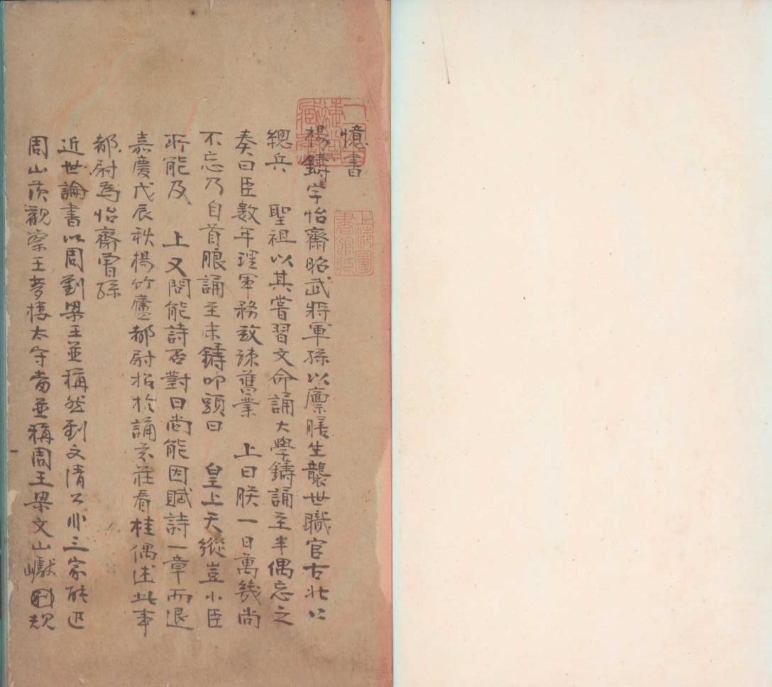 憶書
楊鑄字怡齋昭武將軍孫以廩膳生襲世職官古北口
總兵　聖祖以其嘗習文命誦大學鑄誦至半偶忘之
奏曰臣數年理軍務致疎舊業　上曰朕一日萬幾尚
不忘乃自首朗誦至末鑄叩頭曰　皇上天縱豈小臣
所能及　上又問能詩否對曰尚能因賦詩一章而退
嘉慶戊辰秋楊竹廬都尉招於誦芬莊看桂偶述此事
都尉爲怡齋曾孫
近世論書以周劉梁王並稱然劉文清公非三家所及
周山茨觀察王夢樓太守當並稱周王梁文山巘規